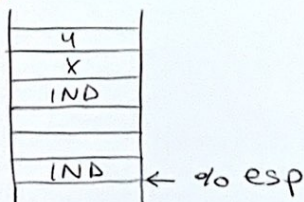 y
X
IND
IND ← % esp